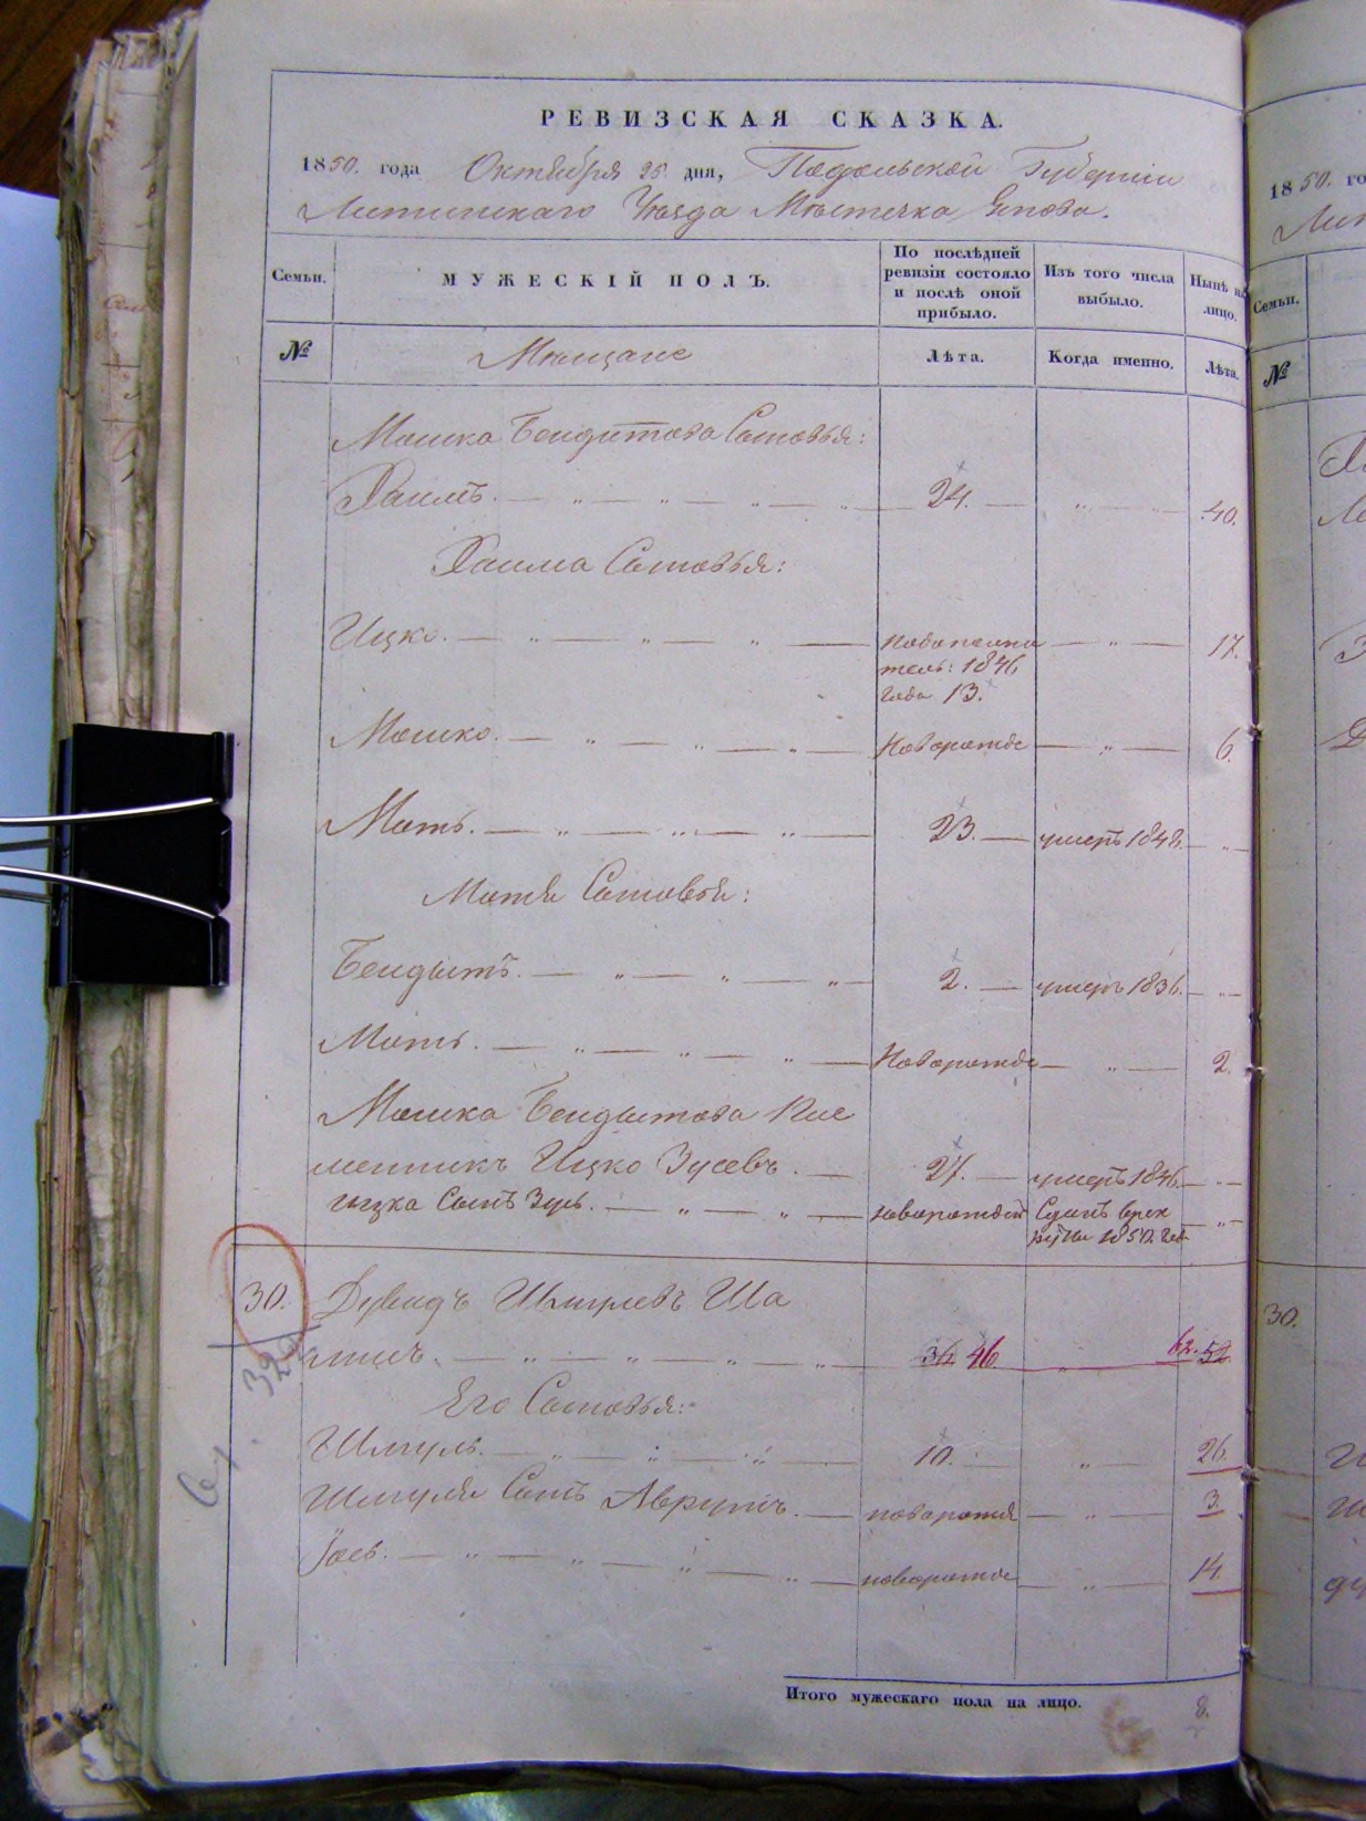 РЕВИЗСКАЯ СКАЗКА.
1850. года Октября 25 дня, Подольской Губернии
Литинскаго Уѣзда Мѣстечка Янова.
Семьи.
МУЖЕСКІЙ ПОЛЪ.
По послѣдней ревизіи состояло и послѣ оной прибыло.
Изъ того числа выбыло.
Нынѣ на лицо.
№
Мѣщане
Лѣта.
Когда именно.
Лѣта.
Мошка Бендитова Сыновья:
Хаимъ. 24. 40.
Хаима Сыновья:
Ицко. 17.
1846
года 13.
Мошко. Новорожде 6.
Моть. 23. умеръ 1848.
Мотя Сыновья:
Бендытъ. 2. умеръ 1836.
Моть. Новорожде 2.
Мошка Бендытова Пле
менникъ Ицко Зусевъ. 27. умеръ 1846.
Ицка Сынъ Зусь. новорожден Сданъ врек
руты 1850. год
30. Дувидъ Шмулевъ Ша
36 46 62. 52
Его Сыновья:
Шмуль. 10. 26.
Шмуля Сынъ Аврумъ. новорожд 3.
Іось. новорожде 14.
Итого мужескаго пола на лицо. 8.
1850. го
Лит
Семьи.
№
30.